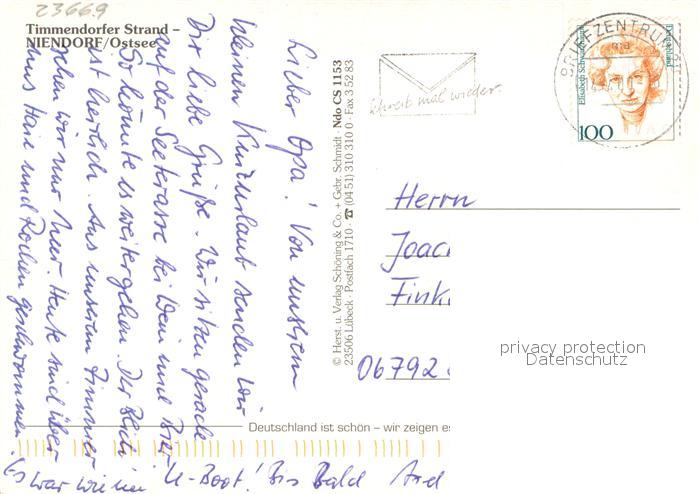 23669
Timmendorfer Strand –
NIENDORF/Ostsee
Lieber Opa! Von unserem
kleinen Kurzurlaub senden wir
Dir liebe Grüße. Wir sitzen gerade
auf der Seeterasse bei Wein und Bier.
So könnte es weitergehen. Der Blick
ist herrlich. Aus unserem Zimmer
sehen wir nur Meer. Heute sind über
uns Haie und Rochen geschwommen.
Es war wie im U-Boot! Bis Bald
© Herst. u. Verlag Schöning & Co. + Gebr. Schmidt · Ndo CS 1153
23506 Lübeck · Postfach 1710 · ☎ (04 51) 310 310 0 · Fax 3 52 83
Schreib mal wieder
BRIEFZENTRUM
Elisabeth Schwarzhaupt
100
Herrn
Joac
Fink
06792
privacy protection
Datenschutz
Deutschland ist schön – wir zeigen es